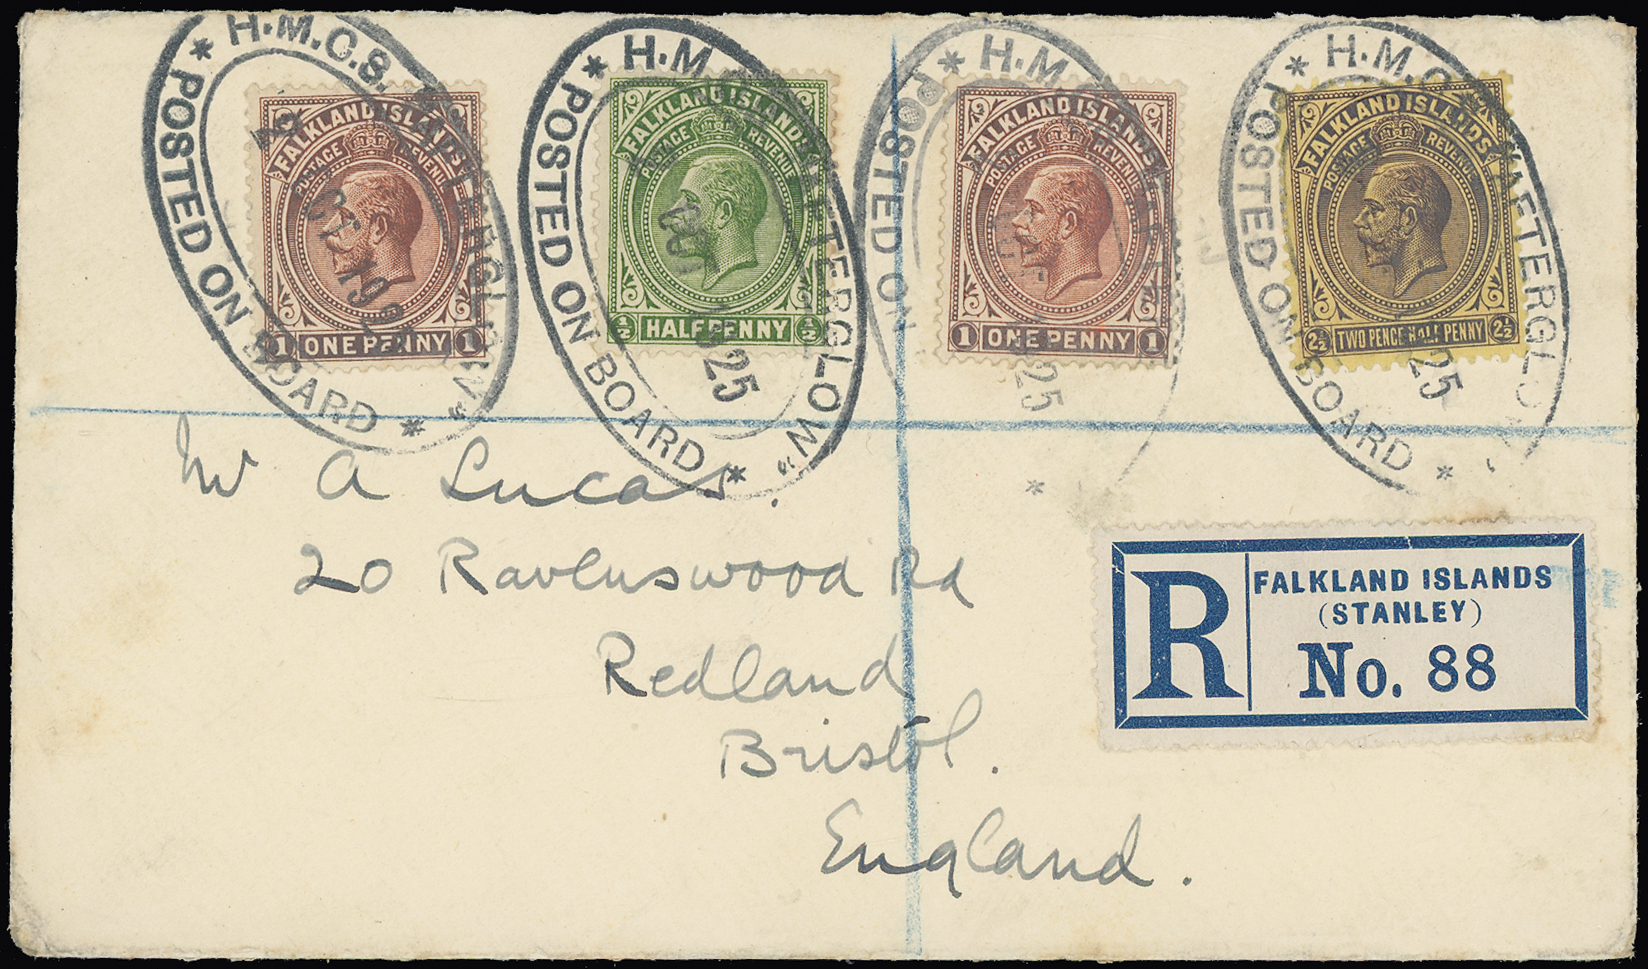 * H.M.C.S. "AFTERGLOW" * POSTED ON BOARD
FALKLAND ISLANDS
POSTAGE REVENUE
1 ONE PENNY 1
* H.M. "AFTERGLOW" * POSTED ON BOARD
25
FALKLAND ISLANDS
POSTAGE REVENUE
½ HALFPENNY ½
* H.M. * POSTED ON
25
FALKLAND ISLANDS
POSTAGE REVENUE
1 ONE PENNY 1
* H.M.C. "AFTERGLOW" * POSTED ON BOARD
25
FALKLAND ISLANDS
POSTAGE REVENUE
2½ TWO PENCE HALF PENNY 2½
Mr A Lucas.
20 Ravenswood Rd
Redland
Bristol.
England.
R
FALKLAND ISLANDS
(STANLEY)
No. 88